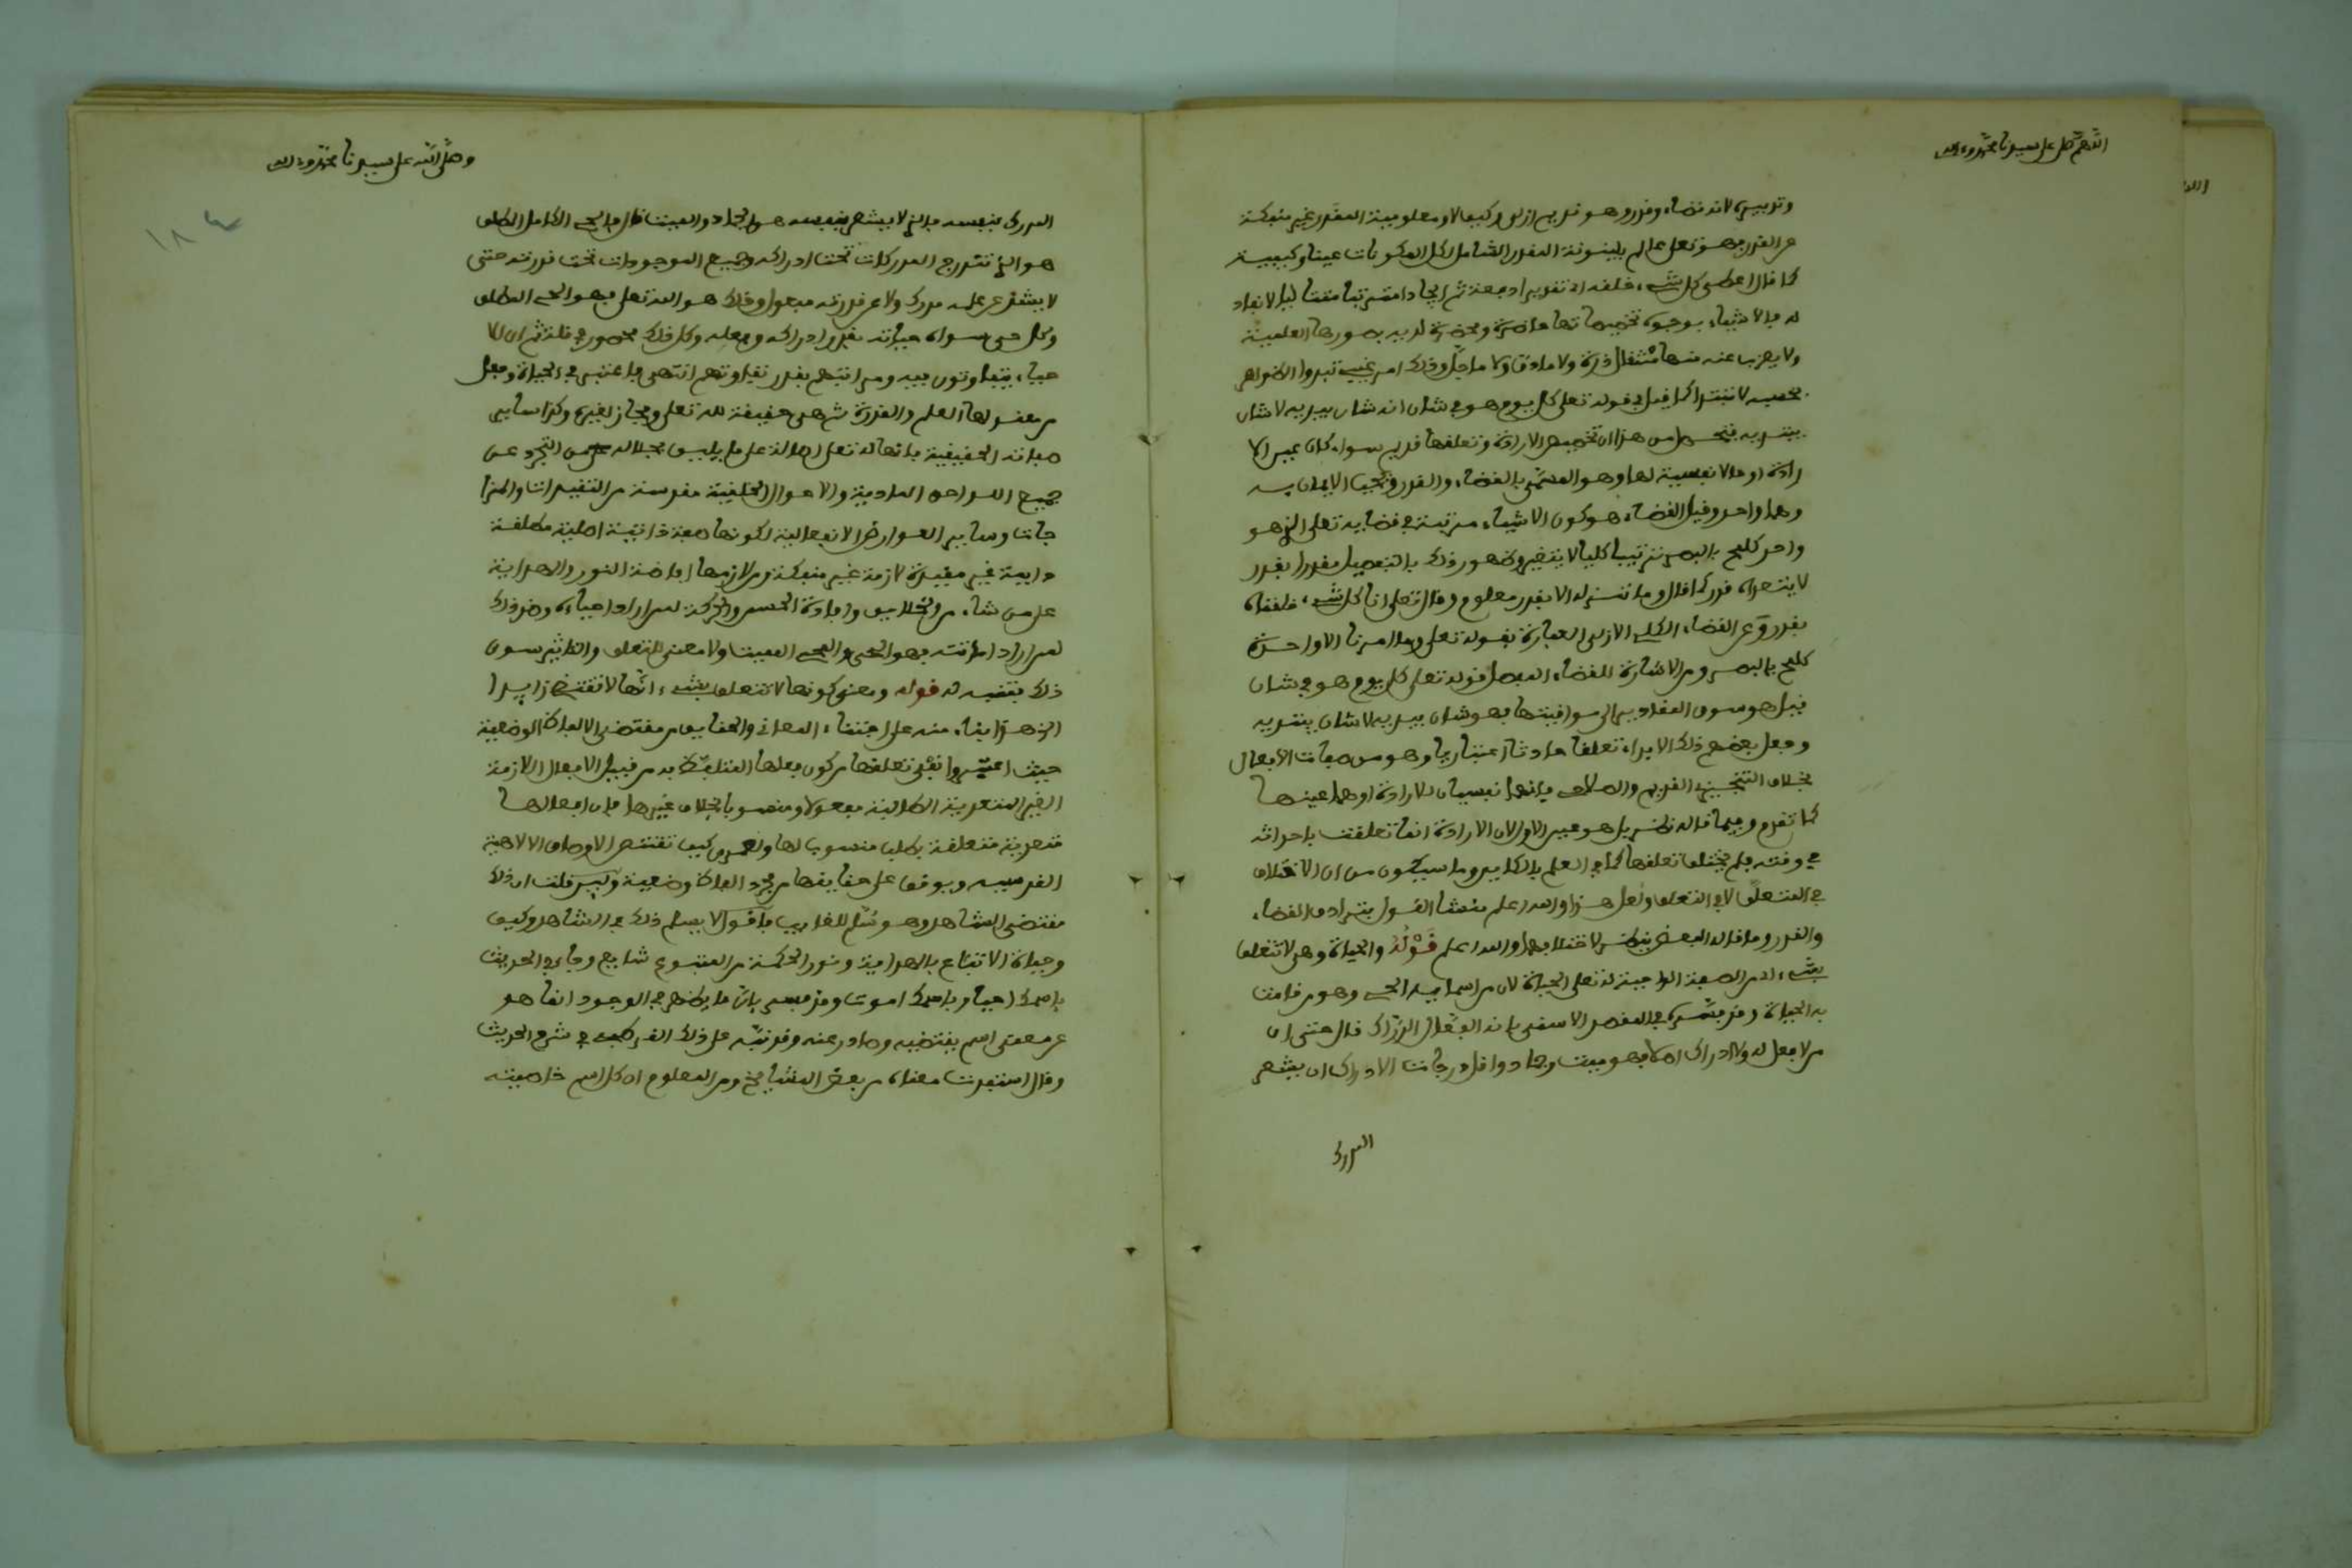 اللهم صل على سيدنا محمد وءاله
وتدبيره لانه قضاء وقدر وهو قديم ازلي وكيف لا ومعلومية المقدر غير منفكة
عن القدر وهو تعلى عالم بلينونة المقدر الشامل لكل المكونات عينا وكيفية
كما قال اعطى كل شيء خلقه اي تقديرا دفعة ثم ايجادا مترتبا متتاليا لا نفاد
له فالاشياء بوجوه تخصيصاتها حاضرة ومحضرة لديه بصورها العلمية
ولا يعزب عنه منها مثقال ذرة ولا ما دق ولا ما جل وذلك امر غيبي تبدوا الظواهر
بحسبه لا تبتدا كما قيل في قوله تعلى كل يوم هو في شان انه شان يبديه لا شان
يبتديه فتحصل من هذا ان تخصيص الارادة وتعلقها قديم سواء كان عين الا
رادة او حالا نفسية لها وهو المسمى بالقضاء والقدر ويجب الايمان به
وهما واحد وقيل القضاء هو كون الاشياء مرتبة في قضايه تعلى الذي هو
واحد كلمح بالبصر ترتيبا كليا لا يتغير وظهور ذلك بالتفصيل مقدرا بقدر
لا يتعداه قدر كما قال وما ننزله الا بقدر معلوم وقال تعلى انا كل شيء خلقناه
بقدر وعن القضاء الكلي الازلي العبارة بقوله تعلى وما امرنا الا واحدة
كلمح بالبصر ومن الاشارة للقضاء المفصل قوله تعلى كل يوم هو في شان
قيل هو سوق المقادير الى مواقيتها فهو شان يبديه لا شان يبتديه
وجعل بعضهم ذلك الابداء تعلقا حادثا اعتباريا وهو من صفات الافعال
بخلاف التنجيزي القديم والصلاحي فانهما نفسيان للارادة او هما عينها
كما تقدم وفيما قاله نظر بل هو عين الاول لان الارادة انما تعلقت باحداثه
في وقته فلم يختلف تعلقها كما في العلم بالكاين وما سيكون من ان الاختلاف
في المتعلق لا في التعلق ولعل هذا والله اعلم منشا القول بترادف القضاء
والقدر وما قاله البعض ينظر لاختلافهما والله اعلم قوله والحياة وهي لا تتعلق
بشيء اي من الصفة الواجبة له تعلى الحياة لان من اسمايه الحي وهو من قامت
به الحياة وقد فسره في المقصد الاسنى بانه الفعال الدراك قال حتى ان
من لا فعل له ولا ادراك اصلا فهو ميت وجماد واقل درجات الادراك ان يشعر
المدرك
وصلى الله على سيدنا محمد وءاله
١٨٤
المدرك بنفسه فالذي لا يشعر بنفسه هو الجماد والميت قال فالحي الكامل المطلق
هو الذي تندرج المدركات تحت ادراكه وجميع الموجودات تحت قدرته حتى
لا يشذ عن علمه مدرك ولا عن قدرته مفعول وذلك هو الله تعلى فهو الحي المطلق
وكل حي سواه حياته بقدر ادراكه وفعله وكل ذلك محصور في قلة ثم ان الا
حياء يتفاوتون فيه ومراتبهم بقدر تفاوتهم انتهى فاعتبر في الحياة وجعل
من مدلولها العلم والقدرة ثم هي حقيقة لله تعلى ومجاز لغيره وكذا ساير
صفاته الحقيقية فانها له تعلى اصالة على ما يليق بجلاله من التجرد عن
جميع اللواحق المادية والاحوال الخلقية مقدسة من التقييدات والمزا
جات وساير العوارض الانفعالية لكونها صفة ذاتية اصلية مطلقة
دايمة غير مقيدة لازمة غير منفكة ومن لازمها افاضة النور والهداية
على من شاء من الخلايق وافادة الحس والحركة لمن اراد احياءه وضد ذلك
لمن اراد اماتته فهو المحي والمحي المميت ولا معنى للتعلق والتاثير سوى
ذلك بتنبيه له قوله ومعنى كونها لا تتعلق بشيء انها لا تقتضي زايدا
الخ هذا بناء منه على اجتناء المعاني والحقايق من مقتضى الالفاظ الوضعية
حيث اعتبروا نفي تعلقها من كون فعلها المتلبسة به من قبيل الافعال اللازمة
الغير المتعدية الطالبة مفعولا ومنصوبا بخلاف غيرها فان افعالها
متعدية متعلقة بطلب منصوب لها ولعمري كيف تقتنص الاوصاف الالاهية
القدسية ويوقف على حقايقها من مجرد الفاظ وضعية وليس قلت ان ذلك
مقتضى الشاهد وهو سلم للغايب فاقول لا يسلم ذلك في الشاهد وكيف
وحياة الاتباع بالهداية ونور الحكمة من المتبوع شايع وجاء في الحديث
باسمك احيا وباسمك اموت وفد فسر بان ما يظهر في الوجود انما هو
عن معنى اسم يقتضيه وصادر عنه وقد نبه على ذلك القرطبي في شرح الحديث
وقال استفدت معناه من بعض المشايخ ومن المعلوم ان كل اسم خاصيته